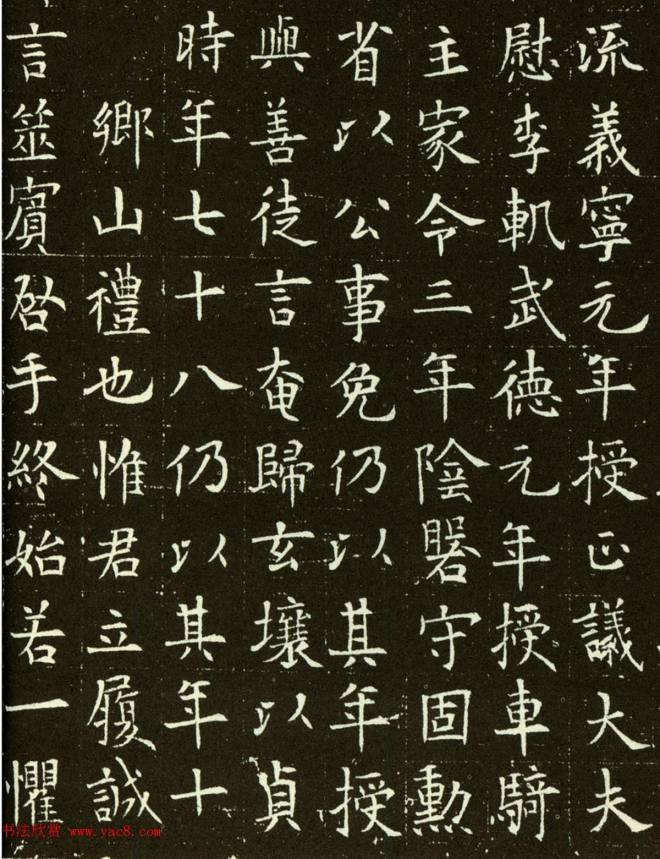 流義寧元年授正議大夫
慰李軌武德元年授車騎
主家令三年陰磐守固勲
省以公事免仍以其年授
與善徒言奄歸玄壤以貞
時年七十八仍以其年十
鄉山禮也惟君立履誠
言筮賓啓手終始若一懼
书法欣赏 www.yac8.com